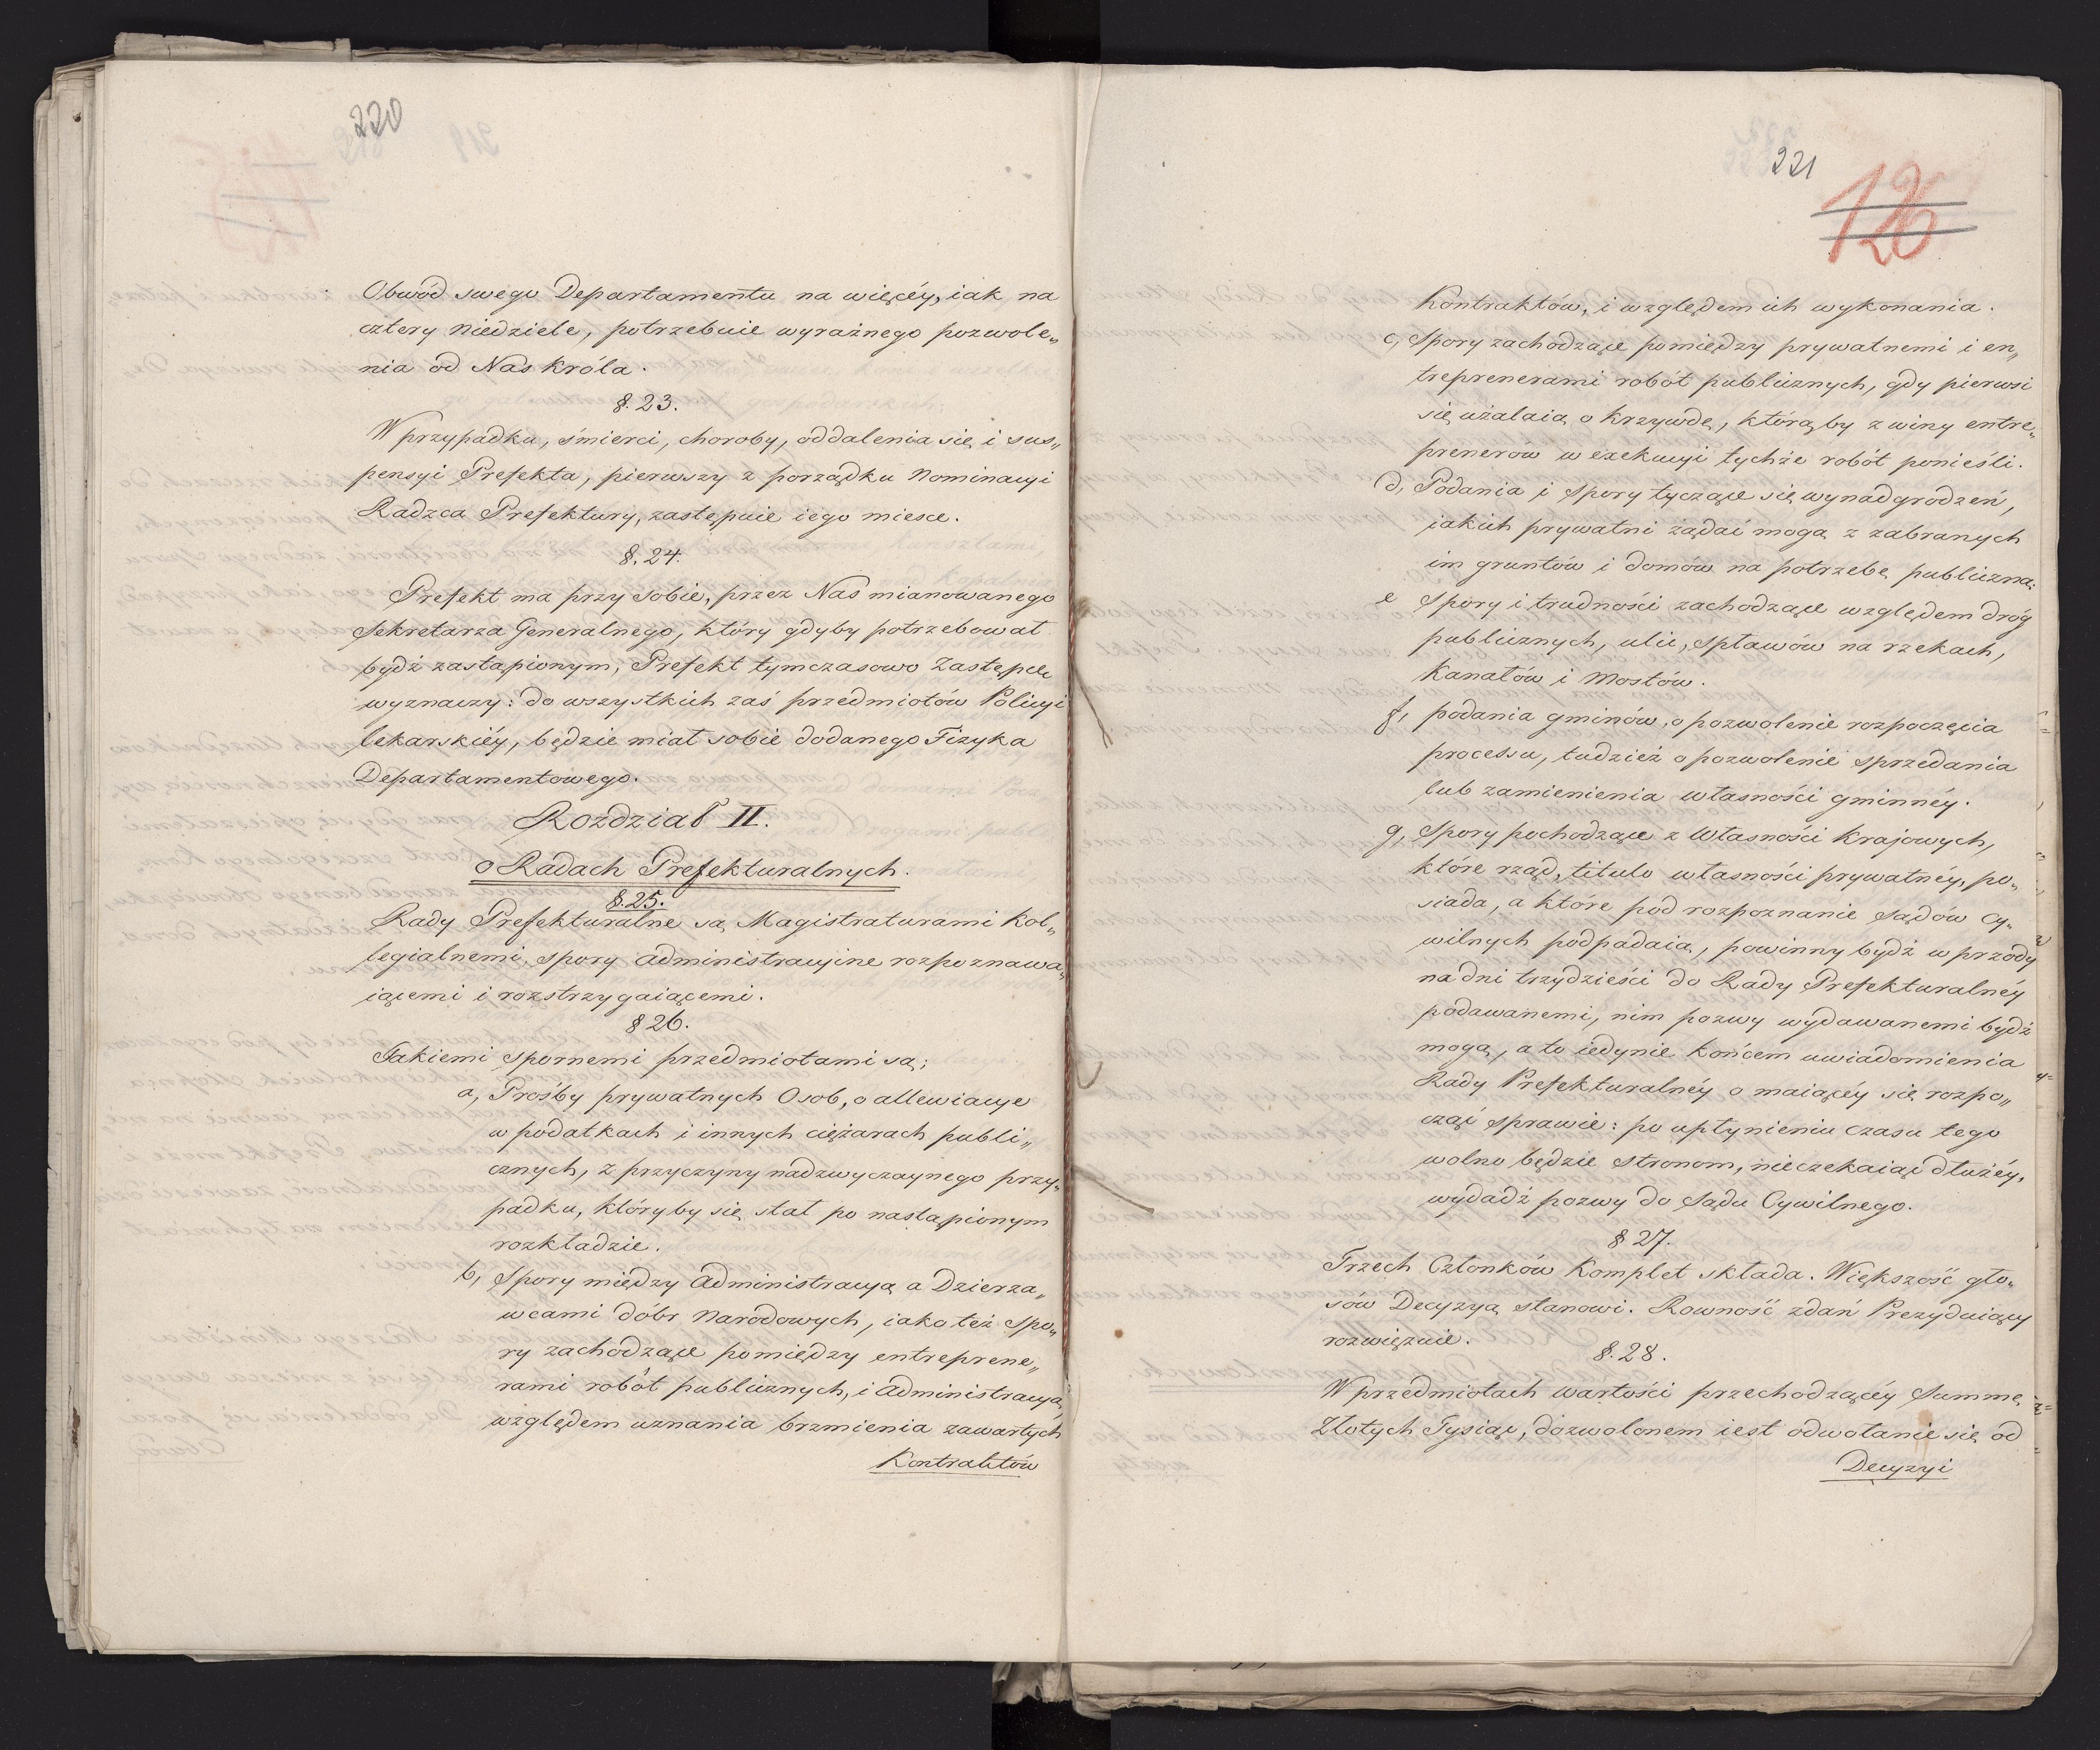 220
Obwód swego Departamentu na więcéy, iak na
cztery niedziele, potrzebuie wyraźnego pozwole„
nia od Nas Króla.
§. 23.
W przypadku, śmierci, choroby, oddalenia się i sus„
pensyi Prefekta, pierwszy z porządku Nominacyi
Radzca Prefektury, zastępuie iego miesce.
§. 24.
Prefekt ma przy sobie, przez Nas mianowanego
Sekretarza Generalnego, który gdyby potrzebował
bydź zastąpionym, Prefekt tymczasowo Zastępcę
wyznaczy: do wszystkich zaś przedmiotów Policyi
lekarskiéy, będzie miał sobie dodanego Fizyka
Departamentowego.
Rozdział II.
o Radach Prefekturalnych.
§. 25.
Rady Prefekturalne są Magistraturami Kol„
legialnemi, spory administracyine rozpoznawa„
iącemi i rozstrzygaiącemi.
§ 26.
Takiemi spornemi przedmiotami są;
a, Prośby prywatnych Osob, o allewiacye
w podatkach i innych ciężarach publi„
cznych, z przyczyny nadzwyczaynego przy„
padku, któryby się stał po nastąpionym
rozkładzie.
b, Spory między administracyą a Dzierza„
wcami dóbr Narodowych, iako też spo„
ry zachodzące pomiędzy entreprene„
rami robót publicznych, i administracyą,
względem uznania brzmienia zawartych
Kontraktów
221
126
Kontraktów, i względem ich wykonania.
c, Spory zachodzące pomiędzy prywatnemi i en„
treprenerami robót publicznych, gdy pierwsi
się użalaią o krzywdę, którąby z winy entre„
prenerów w exekucyi tychże robót ponieśli.
d, Podania i Spory tyczące się wynadgrodzeń,
iakich prywatni żądać mogą z zabranych
im gruntów i domów na potrzebę publiczną:
e Spory i trudności zachodzące względem dróg
publicznych, ulic, spławów na rzekach,
Kanałów i Mostów.
f, podania gminów, o pozwolenie rozpoczęcia
processu, tudzież o pozwolenie sprzedania
lub zamienienia własności gminnéy.
g, Spory pochodzące z Własności Krajowych,
które rząd, titulo własności prywatnéy, po„
siada, a ktore pod rozpoznanie Sądów Cy„
wilnych podpadaią, powinny bydź w przódy
na dni trzydzieści do Rady Prefekturalnéy
podawanemi, nim pozwy wydawanemi bydź
mogą, a to iedynie końcem uwiadomienia
Rady Prefekturalnéy o maiącéy się rozpo„
cząć sprawie: po upłynieniu czasu tego
wolno będzie stronom, nieczekaiąc dłużéy,
wydadź pozwy do Sądu Cywilnego.
§ 27.
Trzech Członków Komplet składa. Większość gło„
sów Decyzyą stanowi. Rowność zdań Prezyduiący
rozwięzuie.
§. 28.
W przedmiotach wartości przechodzącéy Summę
Złotych Tysiąc, dozwolonem iest odwołanie się od
Decyzyi